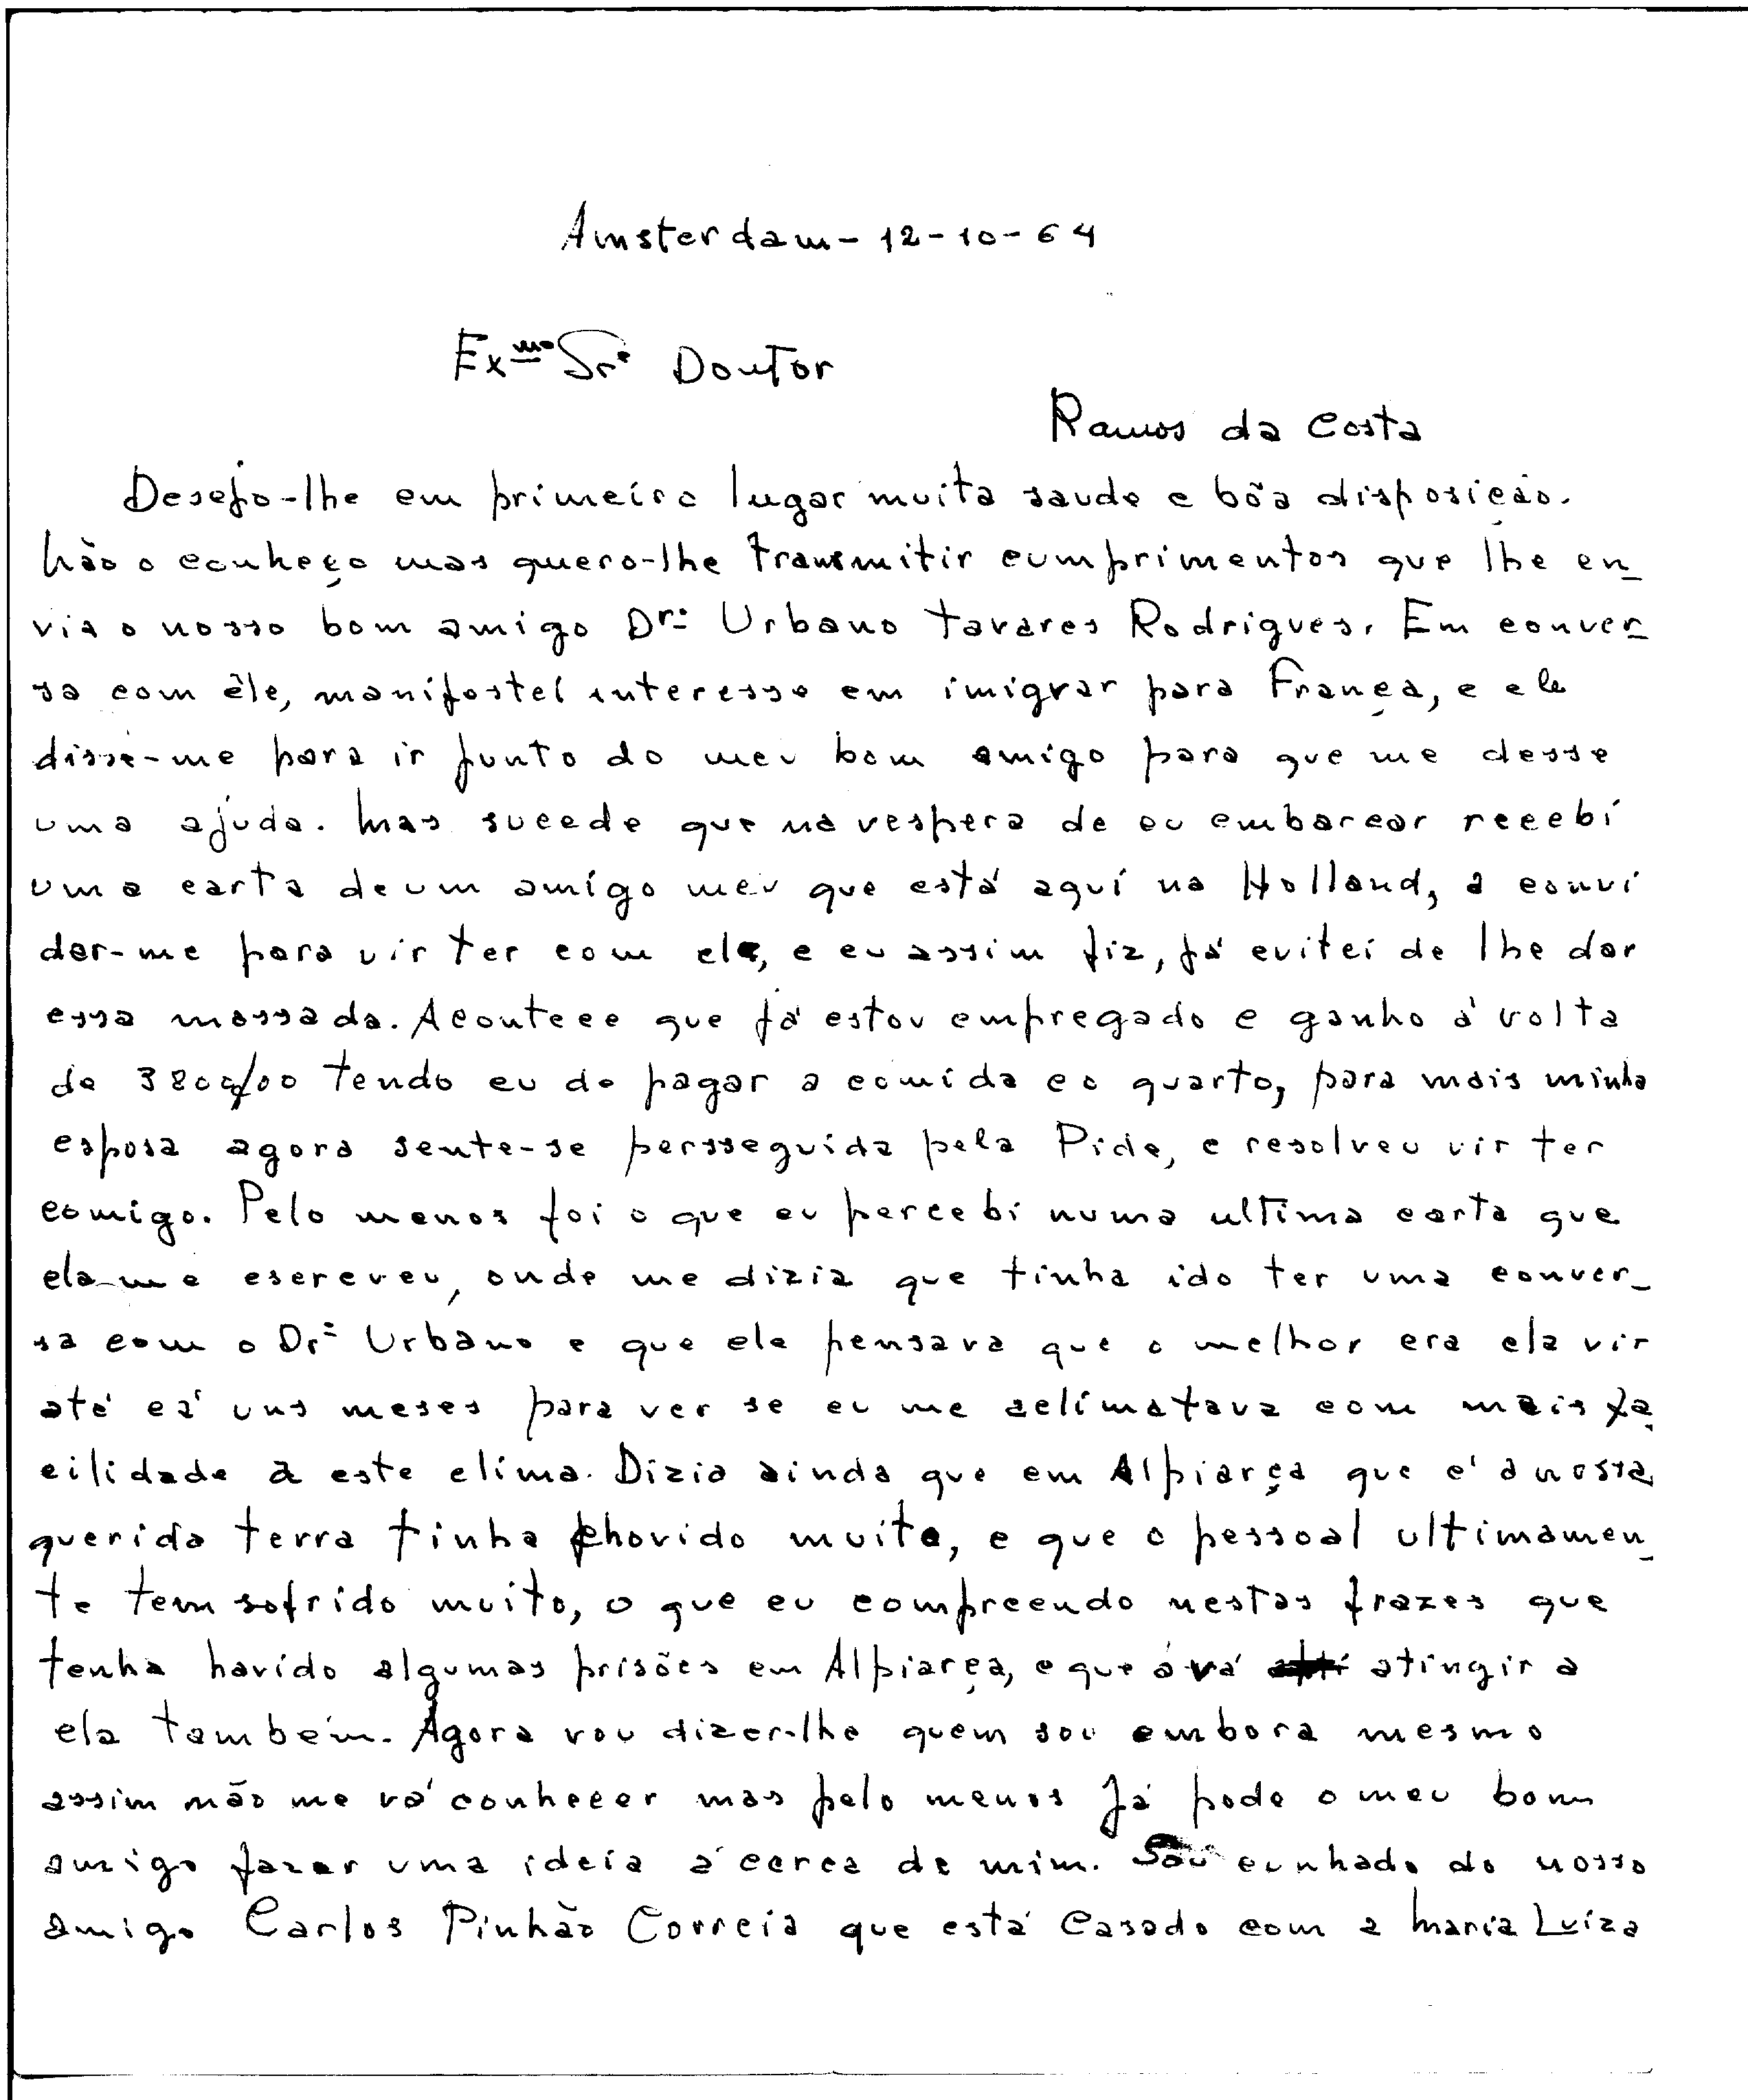 Amsterdam - 12-10-64
Exmo Sr. Doutor
Ramos da Costa
Desejo-lhe em primeiro lugar muita saude e bôa disposição.
Não o conheço mas quero-lhe transmitir cumprimentos que lhe en_
via o nosso bom amigo Dr: Urbano Tavares Rodrigues. Em conver_
sa com êle, manifestei interesse em imigrar para França, e ele
disse-me para ir junto do meu bom amigo para que me desse
uma ajuda. Mas sucede que na vespera de eu embarcar recebi
uma carta de um amigo meu que está aqui na Holland, a convi
dar-me para vir ter com ele, e eu assim fiz, já evitei de lhe dar
essa mossada. Acontece que já estou empregado e ganho á volta
de 3800$00 tendo eu de pagar a comida e o quarto, para mais minha
esposa agora sente-se persseguida pela Pide, e resolveu vir ter
comigo. Pelo menos foi o que eu percebi numa ultima carta que
ela-me escreveu, onde me dizia que tinha ido ter uma conver_
sa com o Dr: Urbano e que ele pensava que o melhor era ela vir
até cá uns meses para ver se eu me aclimatava com mais fa_
cilidade a este clima. Dizia ainda que em Alpiarça que é a nossa
querida terra tinha chovido muito, e que o pessoal ultimamen_
te tem sofrido muito, o que eu compreendo nestas frazes que
tenha havido algumas prisões em Alpiarça, e que a vá atingir a
ela tambem. Agora vou dizer-lhe quem sou embora mesmo
assim não me vá conhecer mas pelo menos já pode o meu bom
amigo fazer uma ideia á cerca de mim. Sou cunhado do nosso
amigo Carlos Pinhão Correia que está casado com a Maria Luiza